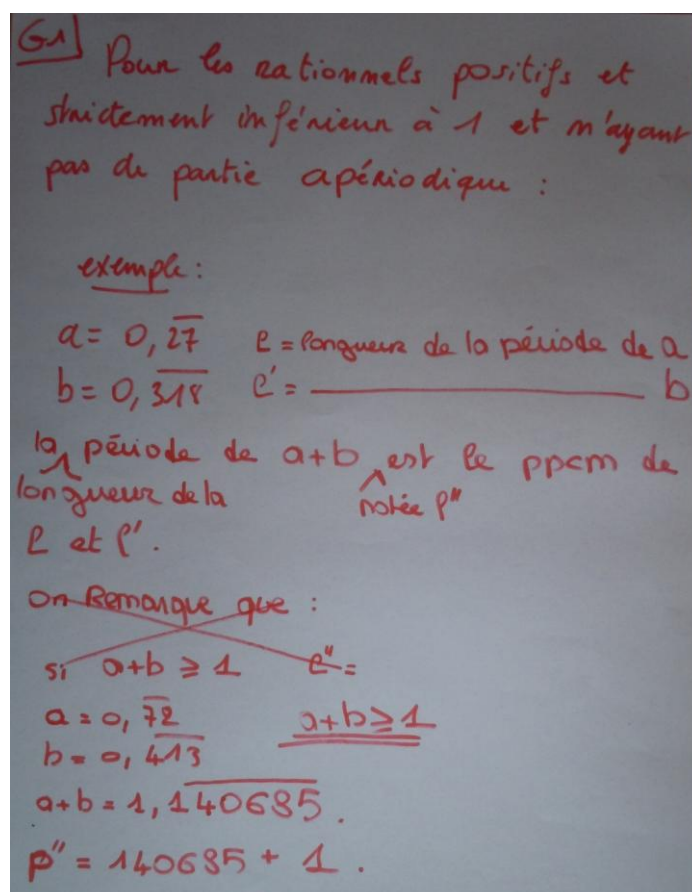 G1 Pour les rationnels positifs et
strictement inférieur à 1 et n'ayant
pas de partie apériodique :
exemple :
a = 0,2̅7̅ ℓ = longueur de la période de a
b = 0,3̅1̅8̅ ℓ' = ―――――――― b
la longueur de la période de a+b notée ℓ" est le ppcm de
ℓ et ℓ'.
On Remarque que :
si a+b ≥ 1 ℓ" =
a = 0,7̅2̅ a+b ≥ 1
b = 0,4̅1̅3̅
a+b = 1,1̅4̅0̅6̅8̅5̅.
p" = 140685 + 1.